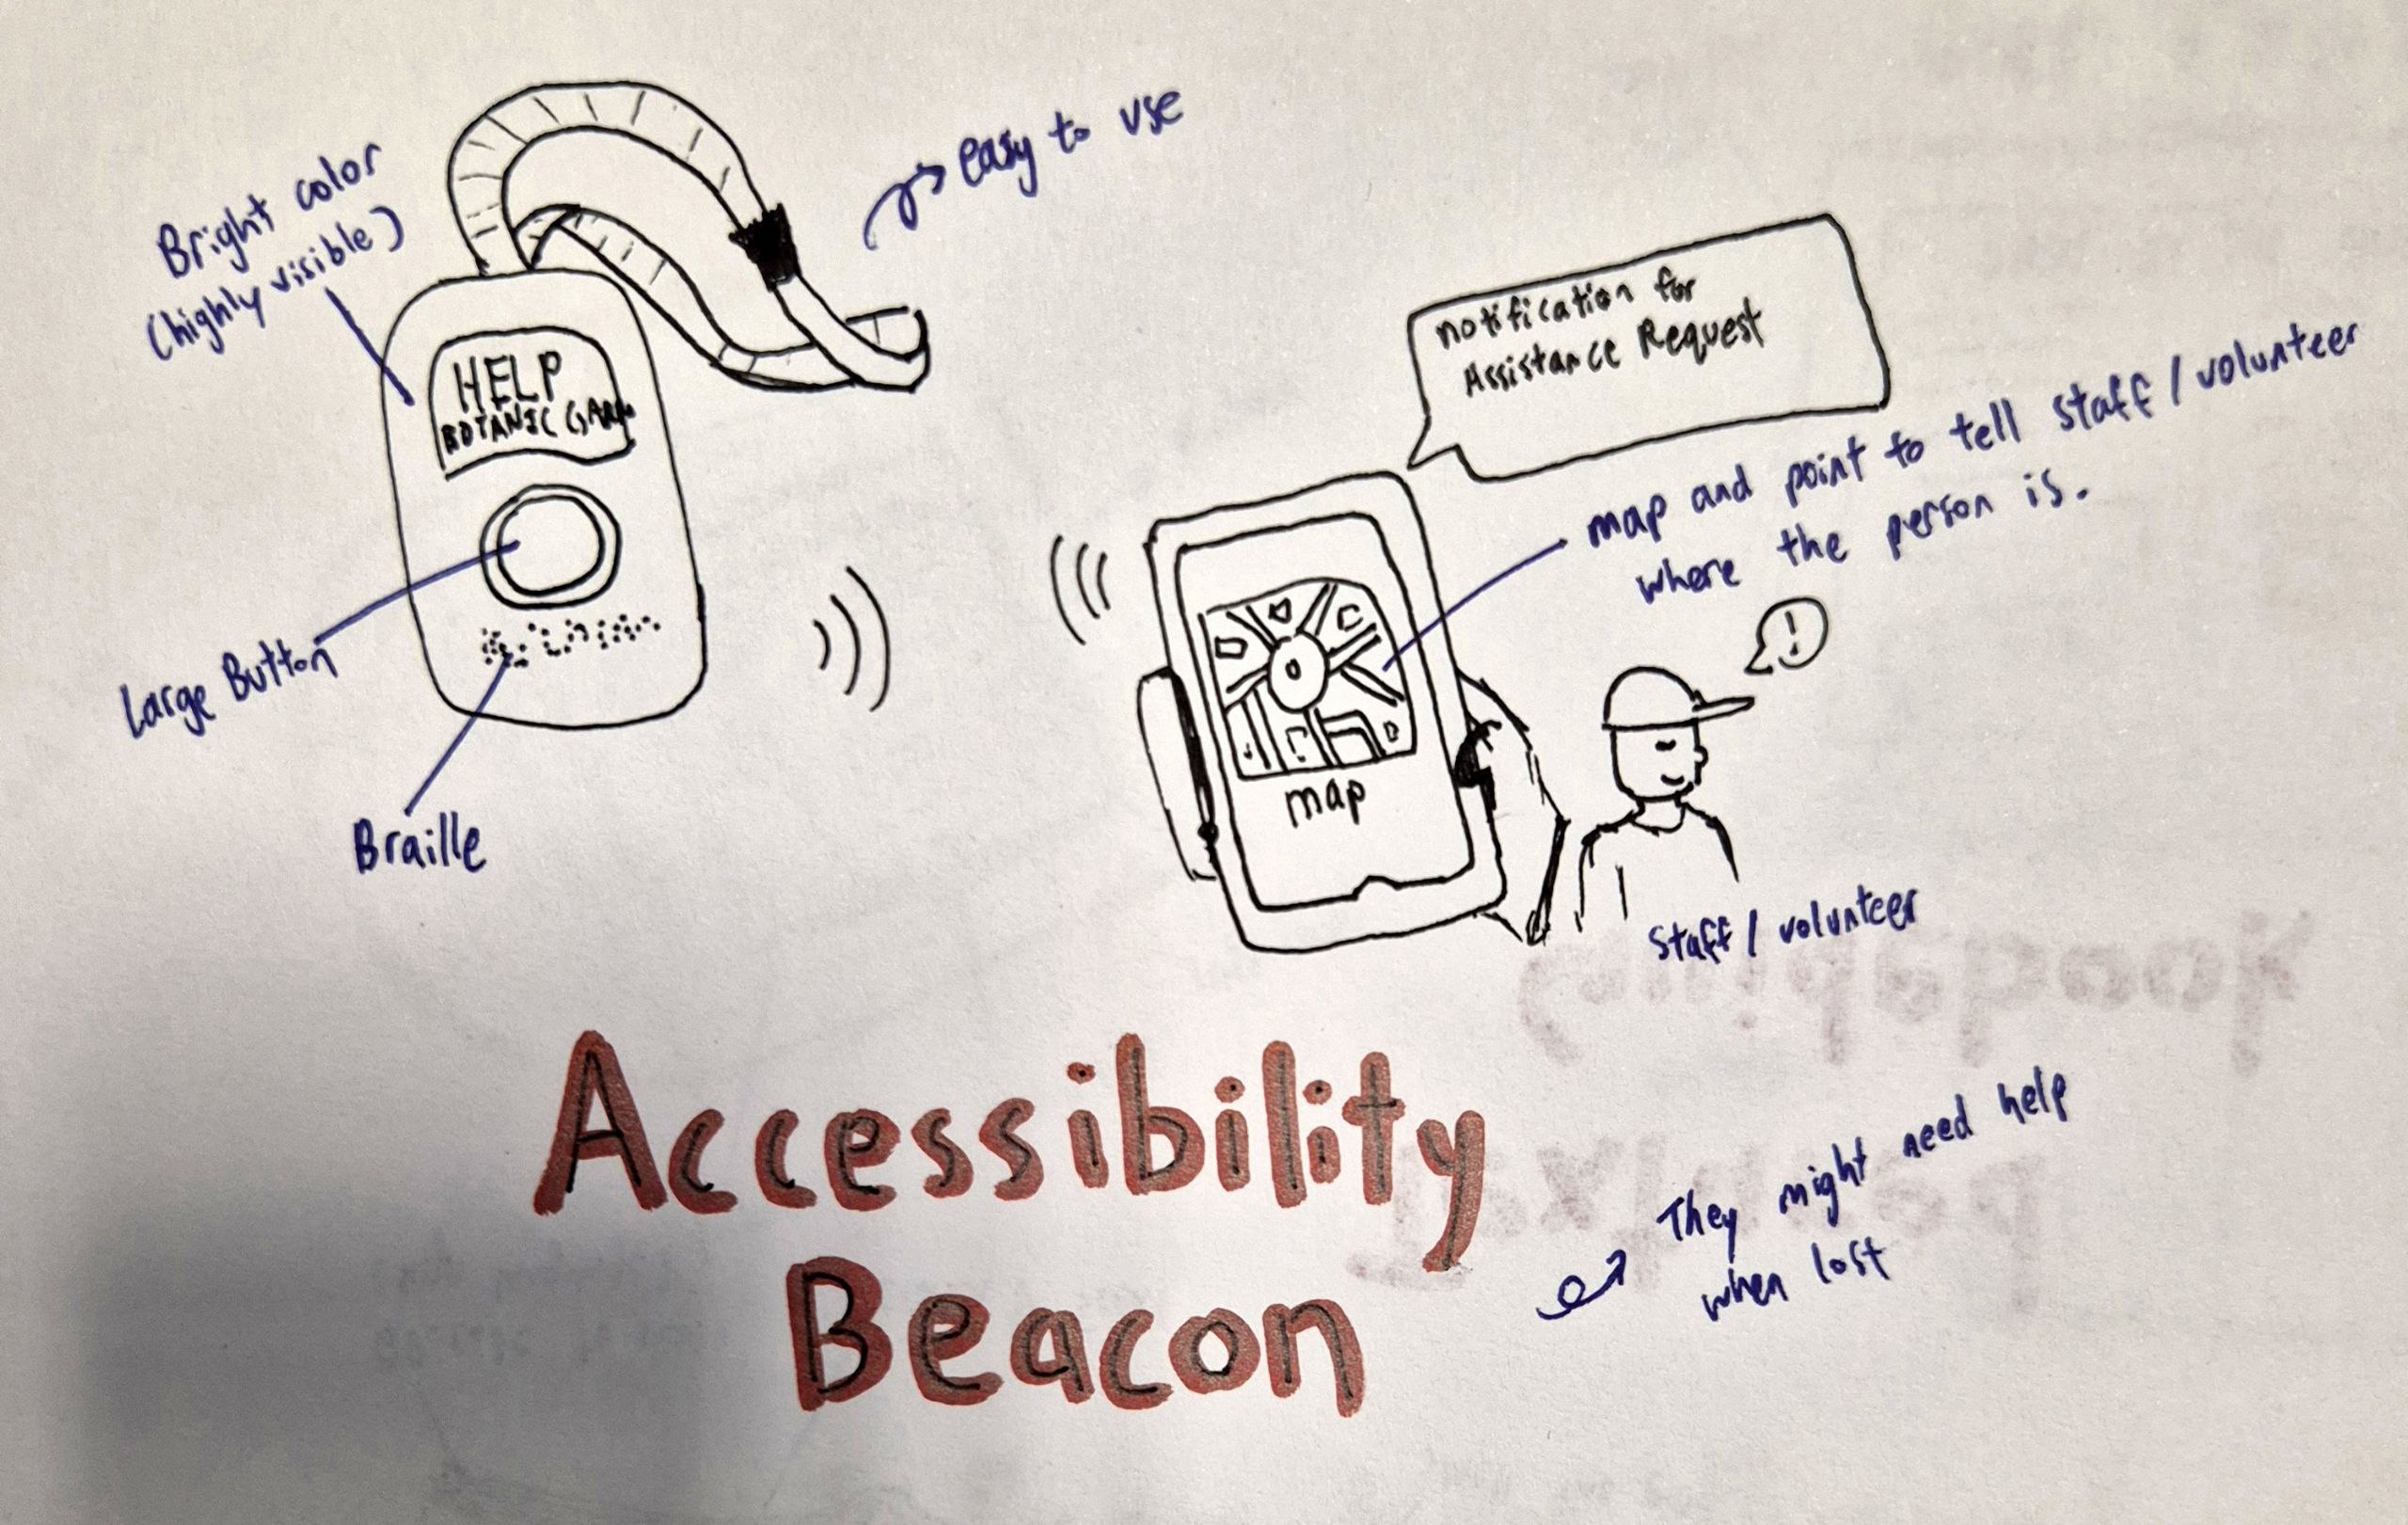 Bright color
(highly visible)
easy to use
HELP
BOTANIC GARD
Large Button
Braille
notification for
Assistance Request
map and point to tell staff / volunteer
where the person is.
!
map
staff / volunteer
Accessibility
Beacon
They might need help
when lost